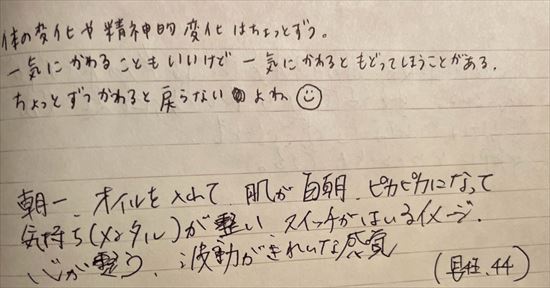 体の変化や精神的変化はちょっとずつ。
一気にかわることもいいけど一気にかわるともどってしまうことがある。
ちょっとずつかわると戻らないよね
朝一、オイルを入れて、肌が 朝、ピカピカになって
気持ち(メンタル)が整い、スイッチがはいるイメージ。
心が整う、波動がきれいな感覚
( 44)